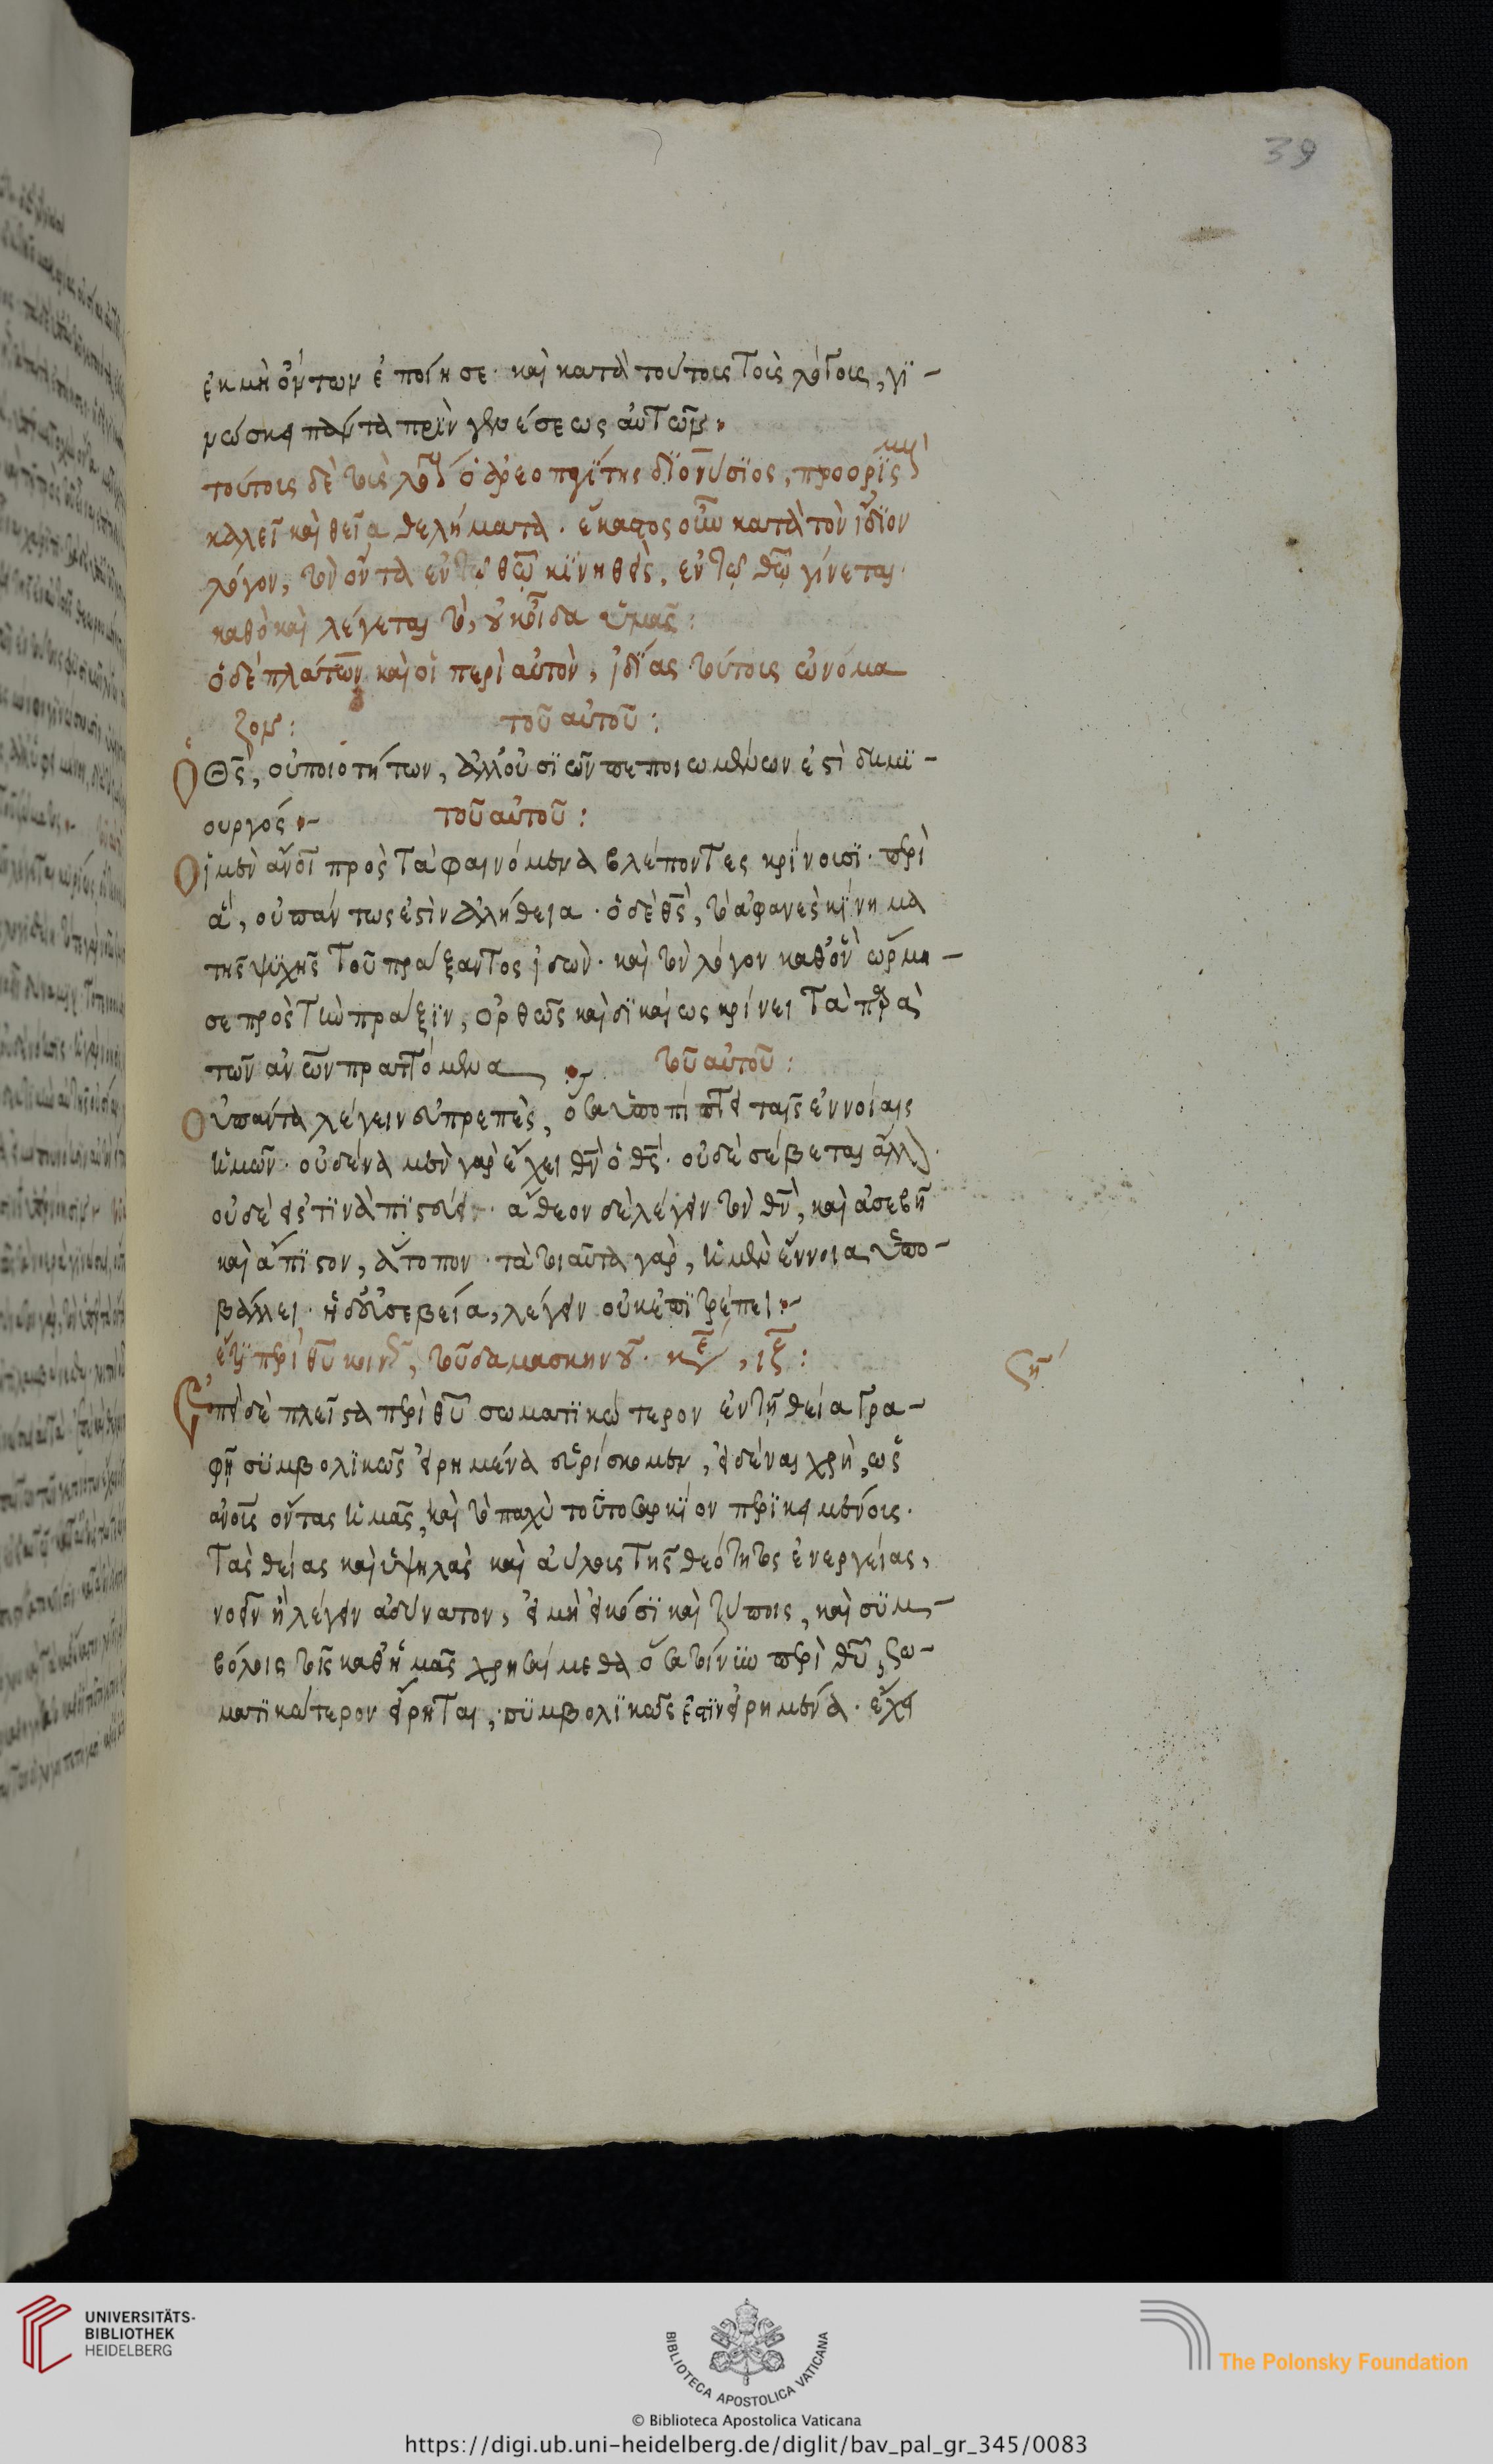 39
ἐκ μὴ ὄντων ἐποίησε· καὶ κατὰ τούτοις τοῖς λόγοις, γϊ-
νώσκει πάντα πρὶν γενέσεως αὐτῶν·
τούτοις δὲ τοὺς λόγους ὁ ἀρεοπαγίτης διονύσϊος, προορϊσμοὺς
καλεῖ καὶ θεῖα θελήματα· ἕκαστος οὖν κατὰ τὸν ἴδϊον
λόγον, τὸν ὄντα ἐν τῷ θῶ κϊνηθεὶς, ἐν τῷ θῶ γίνεται·
καθὸ καὶ λέγεται τὸ, οὐκ οἶδα ὑμᾶς:
ὁ δὲ πλάτων καὶ οἱ περὶ αὐτὸν, ἰδέας τούτοις ὠνόμα
ζον: τοῦ αὐτοῦ:
Ὁ θς, οὐ ποιοτήτων, ἀλλ' οὐσϊῶν πεποιωμένων ἐστὶ δημϊ-
ουργός:- τοῦ αὐτοῦ:
Οἱ μὲν ἄνοι πρὸς τὰ φαινόμενα βλέποντες κρίνουσϊ· περὶ
ἃ, οὐ πάντως ἐστὶν ἀλήθεια· ὁ δὲ θς, τὸ ἀφανὲς κίνημα
τῆς ψϋχῆς τοῦ πράξαντος ἰδὼν· καὶ τὸν λόγον καθ' ὃν ὥρμη-
σε πρὸς τὴν πρᾶξϊν, ὀρθῶς καὶ δϊκαίως κρίνει τὰ παρὰ
τῶν ἀνων πραττόμενα:- τοῦ αὐτοῦ:
Οὐ πάντα λέγειν εὐπρεπὲς, ὅσα ὑποπίπτει ταῖς ἐννοίαις
ἡμῶν· οὐδένα μὲν γὰρ ἔχει θν ὁ θς· οὐδὲ σέβεται ἄλλον
οὐδὲ εἰς τϊνὰ πϊστεύει· ἄθεον δὲ λέγειν τὸν θν, καὶ ἀσεβῆ
καὶ ἄπϊστον, ἄτοπον· τὰ τοιαῦτα γὰρ, ἡ μὲν ἔννοια ὑπο-
βάλλει· ἡ δὲ εὐσέβεια, λέγειν οὐκ ἐπϊτρέπει:-
ἔτϊ περὶ θυ κοινῶς, τοῦ δαμασκηνοῦ·
Ἐπεὶ δὲ πλεῖστα περὶ θυ σωματϊκώτερον ἐν τῇ θείᾳ γρα-
φῇ σϋμβολϊκῶς εἰρημένα εὑρίσκομεν, εἰδέναι χρὴ, ὡς
ἀνοις ὄντας ἡμᾶς, καὶ τὸ παχὺ τοῦτο σαρκίον περϊκειμένοις·
Τὰς θείας καὶ ὑψηλὰς καὶ ἀύλοις τῆς θεότητος ἐνεργείας,
νοεῖν ἢ λέγειν ἀδύνατον, εἰ μὴ εἰκόσϊ καὶ τύποις, καὶ σϋμ-
βόλοις τοῖς καθ' ἡμᾶς χρησαίμεθα ὅσα τοίνϋν περὶ θυ, σω-
ματϊκώτερον εἴρηται, σϋμβολϊκῶς ἐστϊν εἰρημένα· ἔχει
UNIVERSITÄTS-
BIBLIOTHEK
HEIDELBERG
BIBLIOTECA APOSTOLICA VATICANA
The Polonsky Foundation
© Biblioteca Apostolica Vaticana
https://digi.ub.uni-heidelberg.de/diglit/bav_pal_gr_345/0083